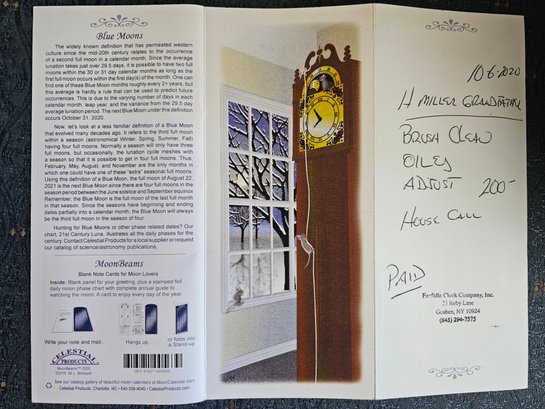 Blue Moons
The widely known definition that has permeated western
culture since the mid-20th century relates to the occurrence
of a second full moon in a calendar month. Since the average
lunation takes just over 29.5 days, it is possible to have two full
moons within the 30 or 31 day calendar months as long as the
first full moon occurs within the first day(s) of the month. One can
find one of these Blue Moon months roughly every 2+ years, but
this average is hardly a rule that can be used to predict future
occurrences. This is due to the varying number of days in each
calendar month, leap year, and the variance from the 29.5 day
average lunation period. The next Blue Moon under this definition
occurs October 31, 2020.
Now, let's look at a less familiar definition of a Blue Moon
that evolved many decades ago. It refers to the third full moon
within a season (astronomical Winter, Spring, Summer, Fall)
having four full moons. Normally a season will only have three
full moons, but occasionally, the lunation cycle meshes with
a season so that it is possible to get in four full moons. Thus,
February, May, August, and November are the only months in
which one could have one of these 'extra' seasonal full moons.
Using this definition of a Blue Moon, the full moon of August 22,
2021 is the next Blue Moon since there are four full moons in the
season period between the June solstice and September equinox
Remember, the Blue Moon is the full moon of the last full month
in that season. Since the seasons have beginning and ending
dates partially into a calendar month, the Blue Moon will always
be the third full moon in the season of four.
Hunting for Blue Moons or other phase related dates? Our
chart, 21st Century Luna, illustrates all the daily phases for the
century. Contact Celestial Products for a local supplier or request
our catalog of science/astronomy publications.
MoonBeams
Blank Note Cards for Moon Lovers
Inside: Blank panel for your greeting, plus a stamped foil
daily moon phase chart with complete annual guide to
watching the moon. A card to enjoy every day of the year.
Write your note and mail...
Hangs up...
or folds into
a Stand-up
CELESTIAL
PRODUCTS
MoonBeams™ 2020
See our catalog gallery of beautiful moon calendars at MoonCalendar.com
Celestial Products, Charlotte, NC • 540-338-4040 • CelestialProducts.com
10-6-2020
H MILLER GRANDFATHER
BRUSH CLEAN
OILED
ADJUST 200-
HOUSE CALL
PAID
Farfalla Clock Company, Inc.
23 Ruby Lane
Goshen, NY 10924
(845) 294-7575